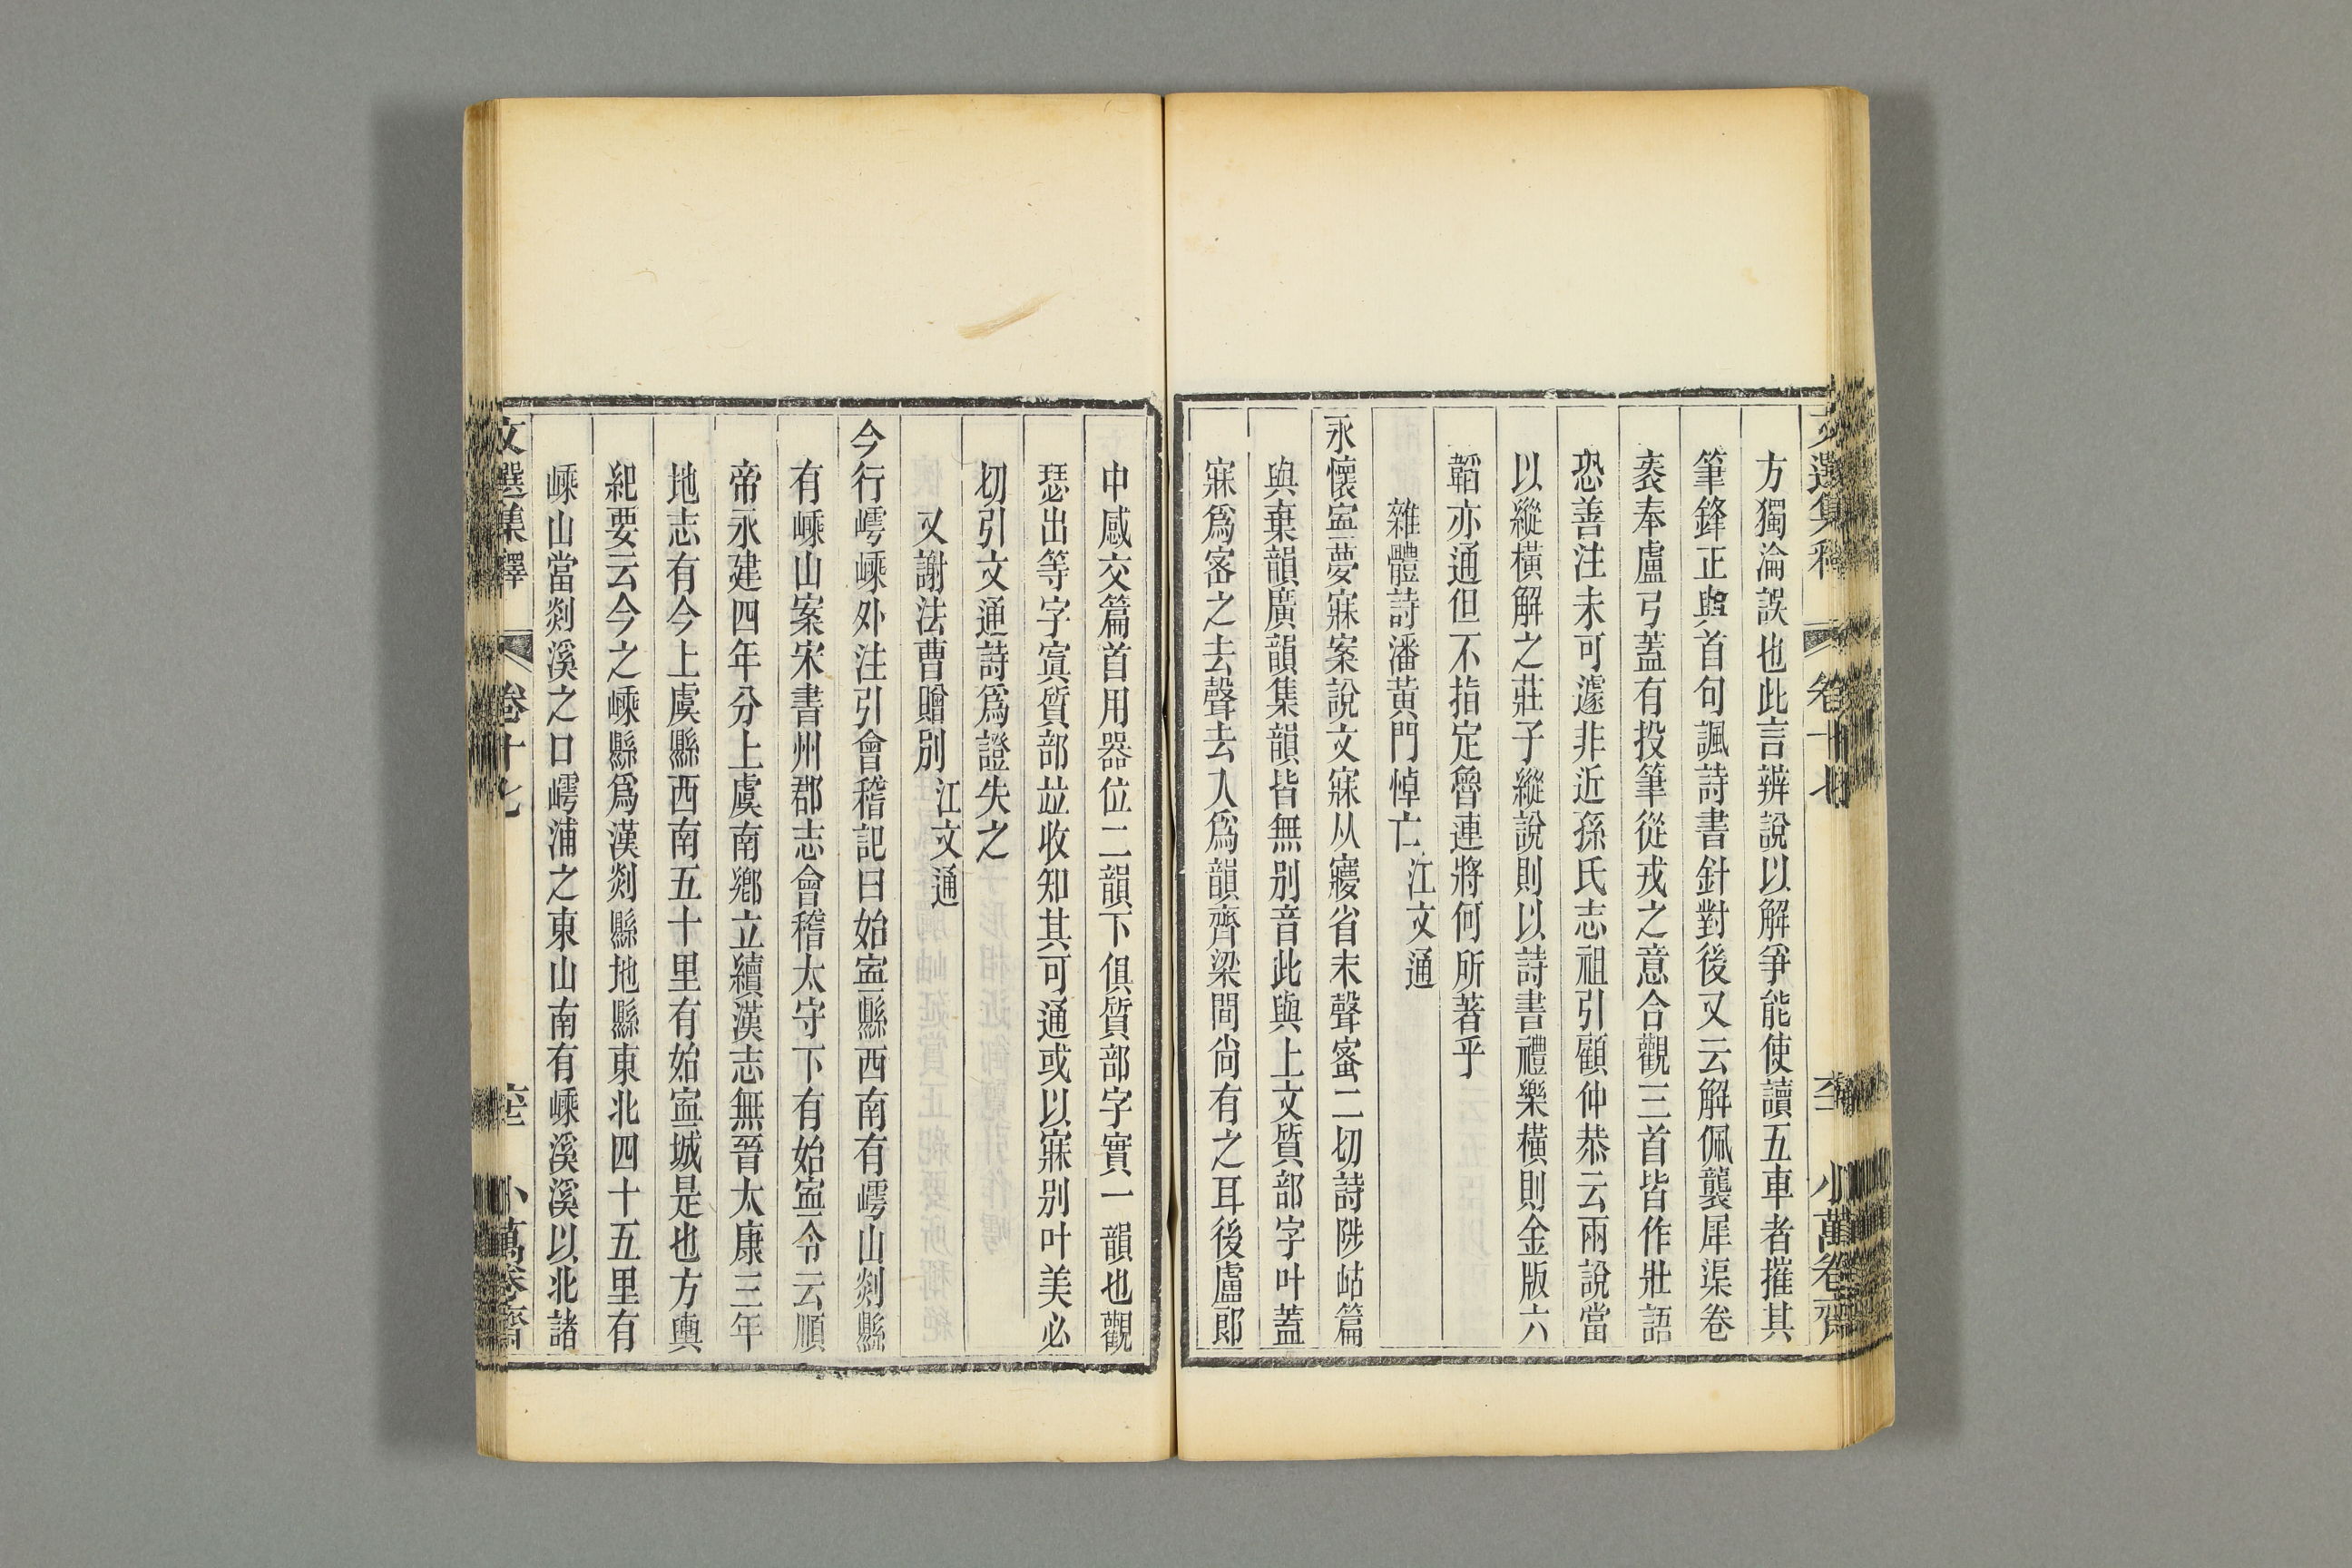 方獨淪誤也此言辨說以解爭能使讀五車者摧其
筆鋒正與首句諷詩書針對後又云解佩襲犀渠卷
袠奉盧弓蓋有投筆從戎之意合觀三首皆作壯語
恐善注未可遽非近孫氏志祖引顧仲恭云兩說當
以縱橫解之莊子縱說則以詩書禮樂橫則金版六
韜亦通但不指定魯連將何所著乎
雜體詩潘黃門悼亡 江文通
永懷寍夢寐案說文寐从㝱省未聲蜜二切詩陟岵篇
與棄韻廣韻集韻皆無別音此與上文質部字叶蓋
寐爲密之去聲去入爲韻齊梁間尚有之耳後盧郎
中感交篇首用器位二韻下俱質部字實一韻也觀
瑟出等字寘質部竝收知其可通或以寐別叶美必
切引文通詩爲證失之
又謝法曹贈別 江文通
今行㟧嵊外注引會稽記曰始寍縣西南有㟧山剡縣
有嵊山案宋書州郡志會稽太守下有始寍令云順
帝永建四年分上虞南鄉立續漢志無晉太康三年
地志有今上虞縣西南五十里有始寍城是也方輿
紀要云今之嵊縣爲漢剡縣地縣東北四十五里有
嵊山當剡溪之口㟧浦之東山南有嵊溪溪以北諸
文選集釋 卷十七 小萬卷齋